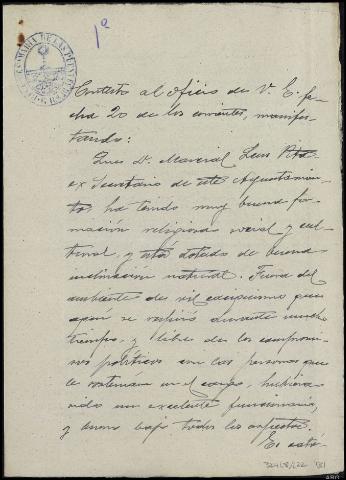 1º
Contesto al oficio de V. E. fe-
cha 20 de los corrientes, manifes-
tando:
Que D. Marcial Leis
ex Secretario de este Ayuntamien-
to, ha tenido muy buena for-
mación religiosa social y cul-
tural, y está dotado de buena
inclinación natural. Fuera del
ambiente de vil caciquismo que
aquí se respiró durante mucho
tiempo, y libre de los compromi-
sos políticos con las personas que
le sostenian en el cargo, hubiera
sido un excelente funcionario,
y bueno bajo todos los aspectos.
Es caté-